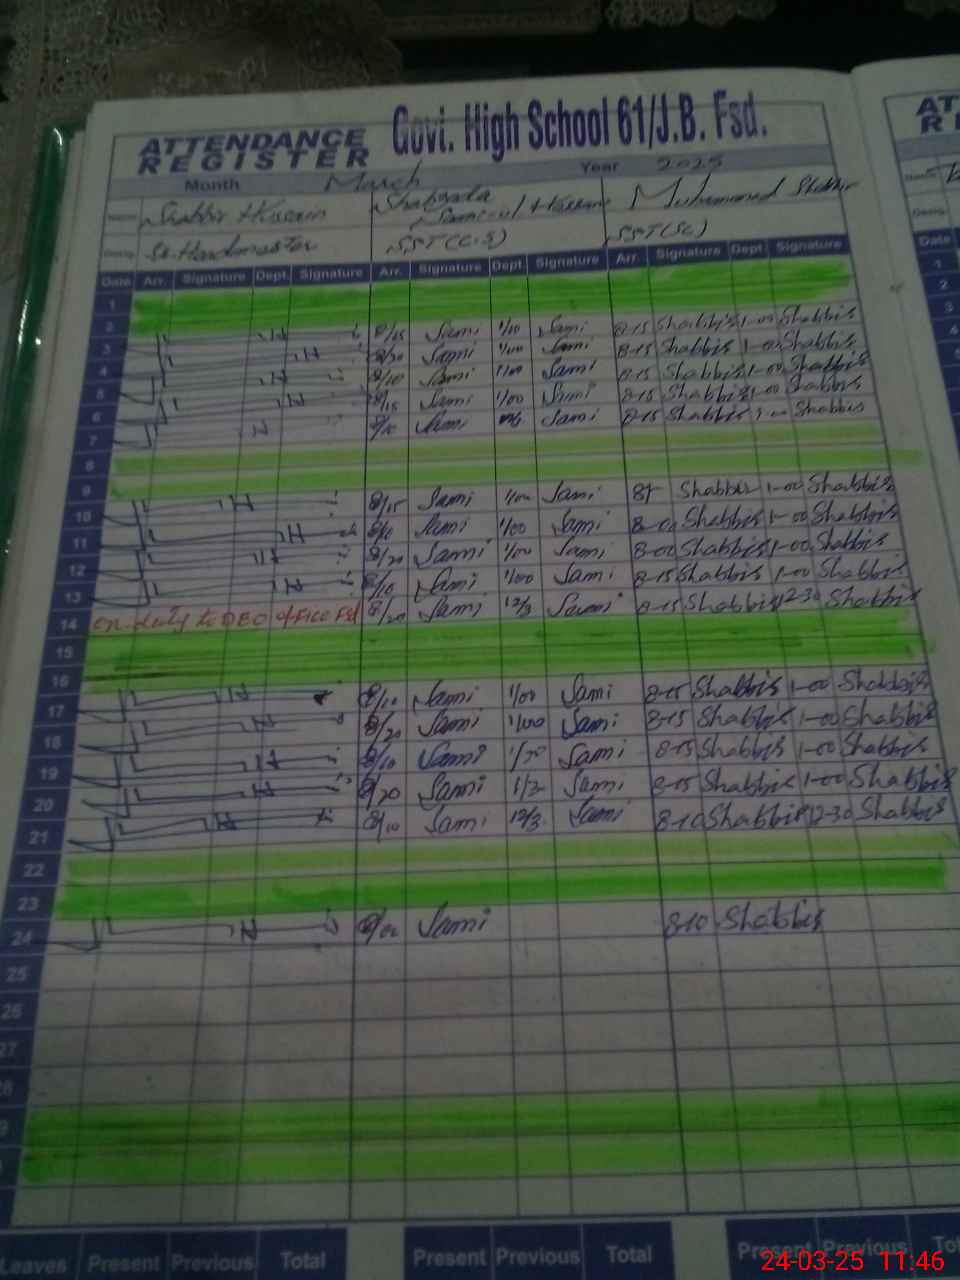 Govt. High School 61/J.B. Fsd. AT
ATTENDANCE REGISTER R E
Month March Year 2025
Name Shabbir Hussain Shahzada Sami-ul-Hassan Muhammad Shabbir
Desig. Sr. Headmaster SST(C.S) SST(SC)
Date Arr. Signature Dept. Signature Arr. Signature Dept Signature Arr. Signature Dept Signature Date
1 1
2 8/15 Sami 1/00 Sami 8-15 Shabbir 1-00 Shabbir 2
3 Sami 1/00 Sami 8-15 Shabbir 1-00 Shabbir 3
4 8/10 Sami 1/00 Sami 8-15 Shabbir 1-00 Shabbir 4
5 8/15 Sami 1/00 Sami 8-15 Shabbir 1-00 Shabbir
6 8/10 Sami Sami 8-15 Shabbir Shabbir
7
8
9 8/15 Sami 1/00 Sami Shabbir 1-00 Shabbir
10 Sami 1/00 Sami 8-00 Shabbir 1-00 Shabbir
11 8/20 Sami 1/00 Sami 8-00 Shabbir 1-00 Shabbir
12 8/10 Sami 1/00 Sami 8-15 Shabbir 1-00 Shabbir
13 on duty to DEO office Fsd 8/20 Sami 12/3 Sami 8-15 Shabbir 12-30 Shabbir
14
15
16 8/10 Sami 1/00 Sami 8-15 Shabbir 1-00 Shabbir
17 8/20 Sami 1/00 Sami 8-15 Shabbir 1-00 Shabbir
18 8/10 Sami Sami 8-15 Shabbir 1-00 Shabbir
19 8/20 Sami Sami 8-15 Shabbir 1-00 Shabbir
20 8/10 Sami 12/3 Sami 8-10 Shabbir 12-30 Shabbir
21
22
23
24 Sami 8-10 Shabbir
25
26
27
28
Leaves Present Previous Total Present Previous Total Present Previous Total
24-03-25 11:46